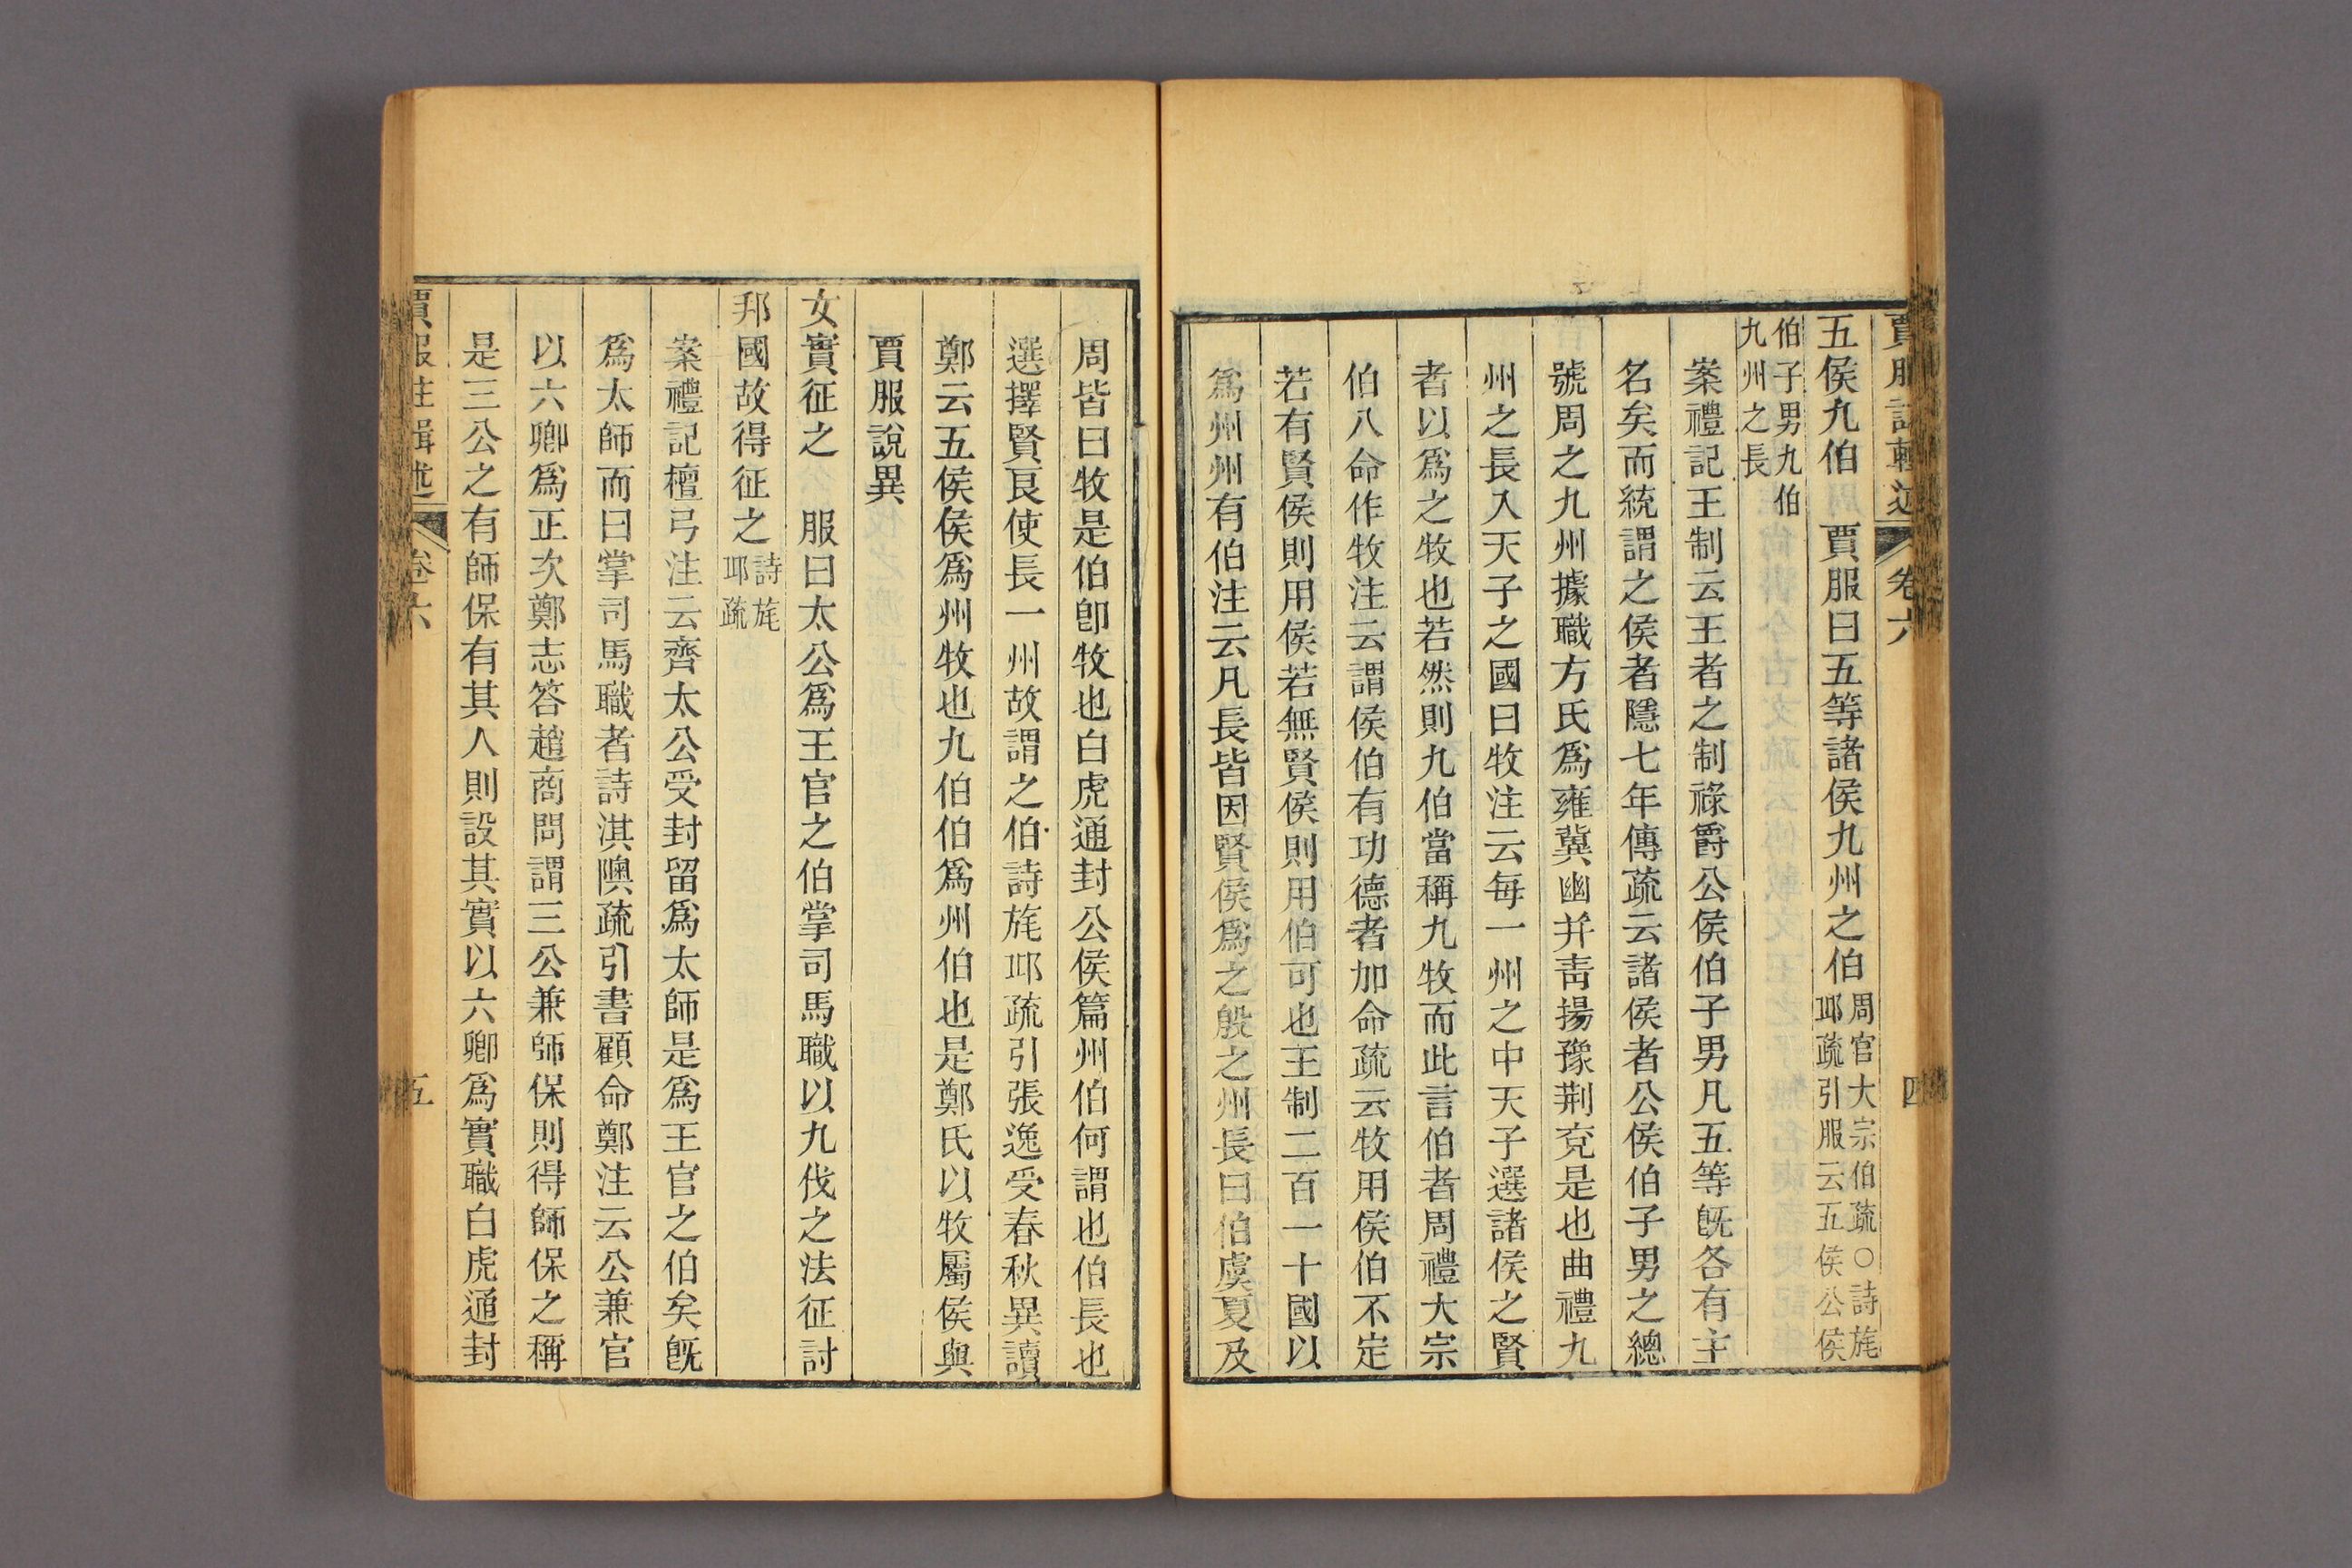 賈服註輯述 卷六 四
五侯九伯 賈服曰五等諸侯九州之伯周官大宗伯疏○詩旄邶疏引服云五侯公侯
伯子男九伯九州之長
案禮記王制云王者之制祿爵公侯伯子男凡五等旣各有主
名矣而統謂之侯者隱七年傳疏云諸侯者公侯伯子男之總
號周之九州據職方氏爲雍冀幽并靑揚豫荆兗是也曲禮九
州之長入天子之國曰牧注云每一州之中天子選諸侯之賢
者以爲之牧也若然則九伯當稱九牧而此言伯者周禮大宗
伯八命作牧注云謂侯伯有功德者加命疏云牧用侯伯不定
若有賢侯則用侯若無賢侯則用伯可也王制二百一十國以
爲州州有伯注云凡長皆因賢侯爲之殷之州長曰伯虞夏及
周皆曰牧是伯卽牧也白虎通封公侯篇州伯何謂也伯長也
選擇賢良使長一州故謂之伯詩旄邶疏引張逸受春秋異讀
鄭云五侯侯爲州牧也九伯伯爲州伯也是鄭氏以牧屬侯與
賈服說異
女實征之 服曰太公爲王官之伯掌司馬職以九伐之法征討
邦國故得征之詩旄邶疏
案禮記檀弓注云齊太公受封留爲太師是爲王官之伯矣旣
爲太師而曰掌司馬職者詩淇隩疏引書顧命鄭注云公兼官
以六卿爲正次鄭志答趙商問謂三公兼師保則得師保之稱
是三公之有師保有其人則設其實以六卿爲實職白虎通封
賈服註輯述 卷六 五